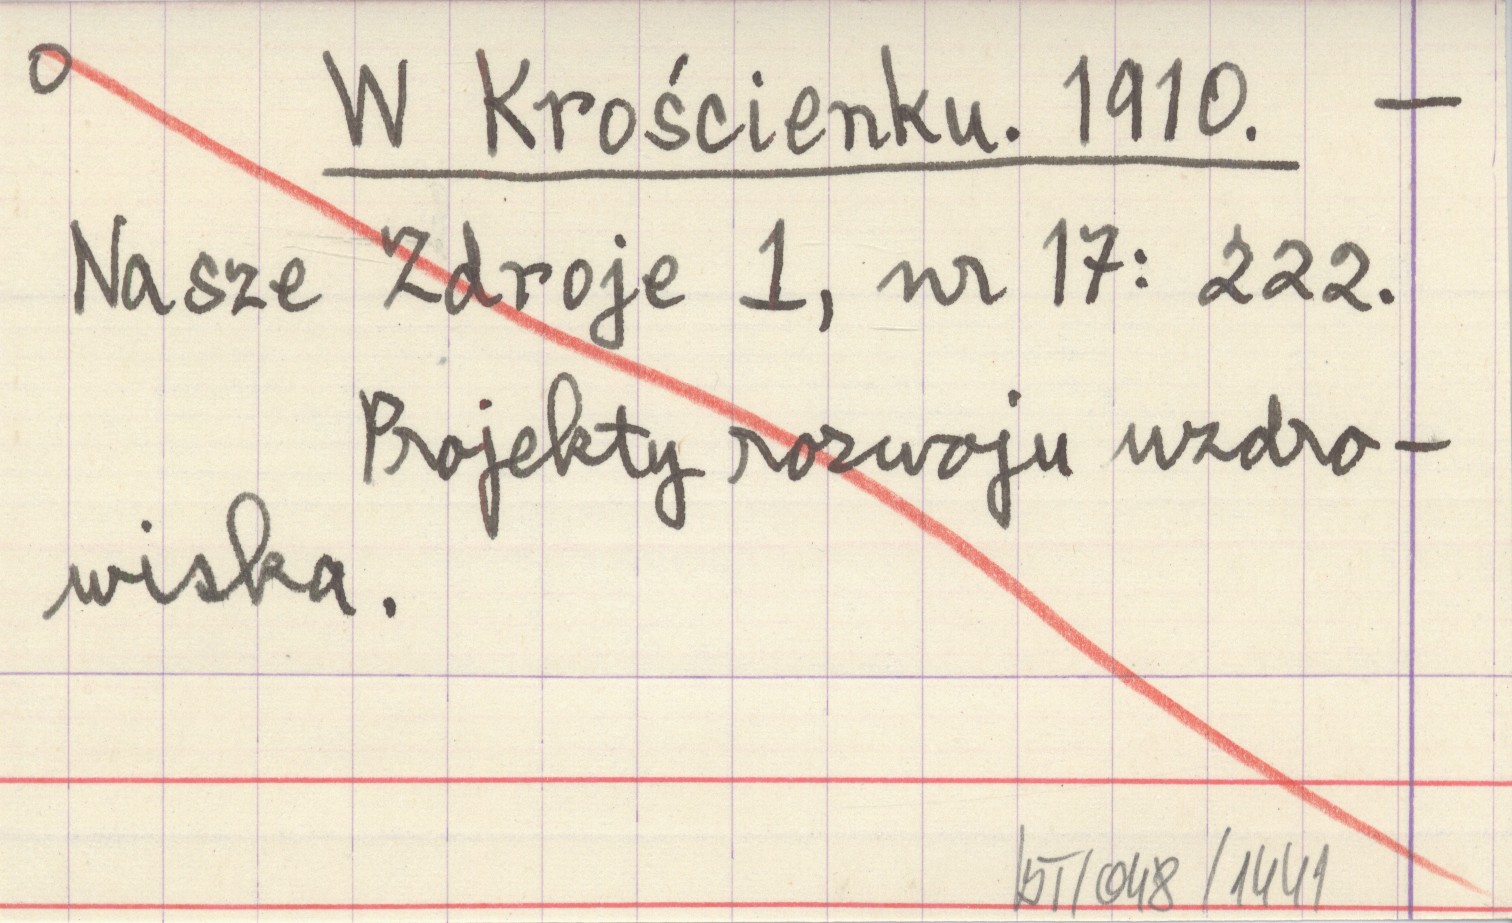 O W Krościenku. 1910. —
Nasze Zdroje 1, nr 17: 222.
Projekty rozwoju uzdro-
wiska.
BT/048/1441